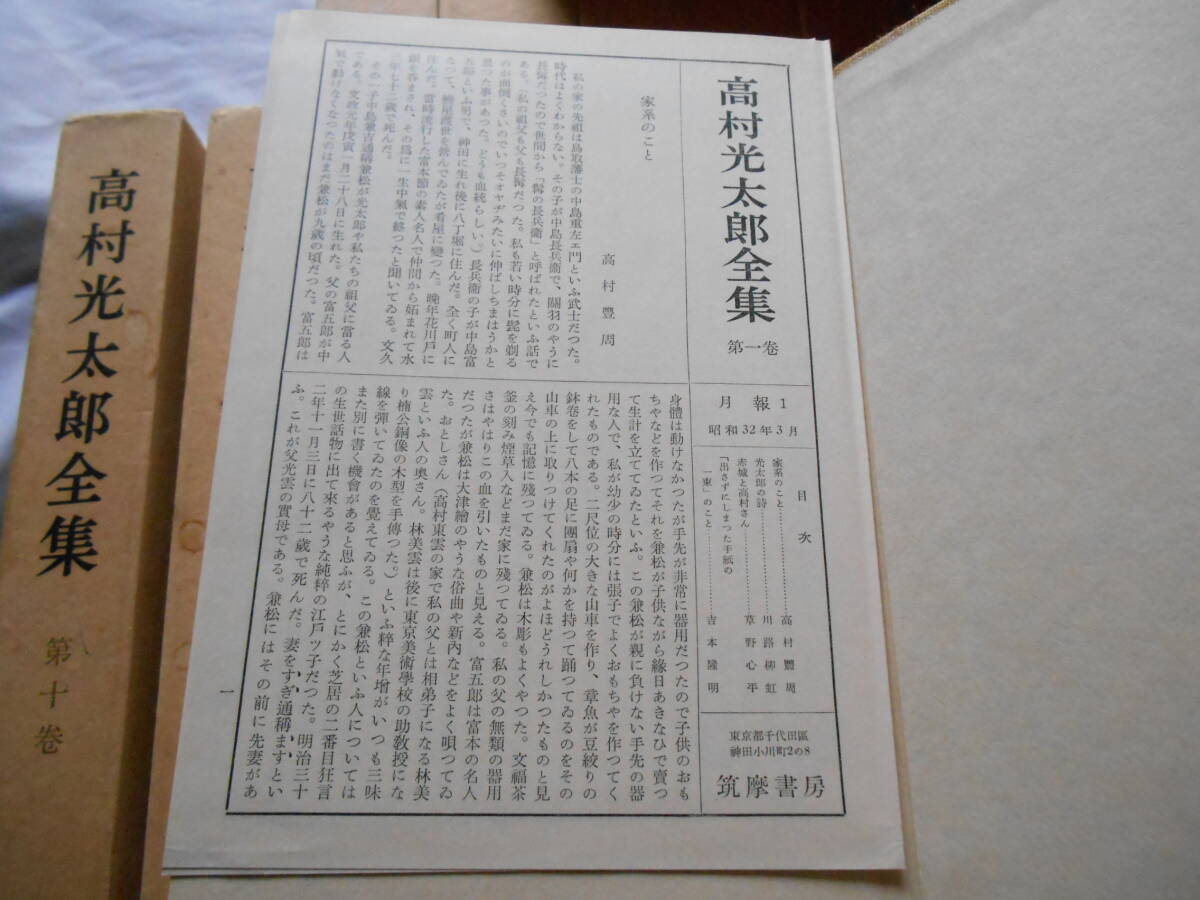 高村光太郎全集
第十巻
高村光太郎全集
第一巻
月報1
昭和32年3月
目次
家系のこと……………高村豐周
光太郎の詩……………川路柳虹
赤城と高村さん…………草野心平
「出さずにしまつた手紙の
一束」のこと…………吉本隆明
東京都千代田區
神田小川町2の8
筑摩書房
家系のこと
高村豐周
私の家の先祖は鳥取藩士の中島重左ェ門といふ武士だつた。
時代はよくわからない。その子が中島長兵衞で、關羽のやうに
長髯だつたので世間から「髯の長兵衞」と呼ばれたといふ話で
ある。「私の祖父も父も長髯だつた。私も若い時分に髭を剃る
のが面倒くさいのでいつそオヤヂみたいに伸ばしちまはうかと
思つた事があつた。どうも血統らしい。）長兵衞の子が中島富
五郎といふ男で、神田に生れ後に八丁堀に住んだ。全く町人に
なつて、鰻屋渡世を營んでゐたが肴屋に變つた。晩年花川戸に
住んだ。當時流行した富本節の素人名人で仲間から妬まれて水
銀を呑まされ、その爲に一生中氣で終つたと聞いてゐる。文久
三年七十三歳で死んだ。
その一子中島兼吉通稱兼松が光太郎や私たちの祖父に當る人
である。文政元年戊寅一月二十八日に生れた。父の富五郎が中
氣で動けなくなつたのはまだ兼松が九歳の頃だつた。富五郎は
身體は動けなかつたが手先が非常に器用だつたので子供のおも
ちやなどを作つてそれを兼松が子供ながら緣日あきなひで賣つ
て生計を立ててゐたといふ。この兼松が親に負けない手先の器
用な人で、私が幼少の時分には張子でよくおもちやを作つてく
れたものである。二尺位の大きな山車を作り、章魚が豆絞りの
鉢卷をして八本の足に團扇や何かを持つて踊つてゐるのをその
山車の上に取りつけてくれたのがよほどうれしかつたものと見
え今でも記憶に殘つてゐる。兼松は木彫もよくやつた。文福茶
釜の刻み煙草入などまだ家に殘つてゐる。私の父の無類の器用
さはやはりこの血を引いたものと見える。富五郎は富本の名人
だつたが兼松は大津繪のやうな俗曲や新內などをよく唄つてゐ
た。おとしさん（高村東雲の家で私の父とは相弟子になる林美
雲といふ人の奧さん。林美雲は後に東京美術學校の助敎授にな
り楠公銅像の木型を手傳つた。）といふ粹な年增がいつも三味
線を彈いてゐたのを覺えてゐる。この兼松といふ人については
また別に書く機會があると思ふが、とにかく芝居の二番目狂言
の生世話物に出て來るやうな純粹の江戸ツ子だつた。明治三十
二年十一月三日に八十二歳で死んだ。妻をすぎ通稱ますとい
ふ。これが父光雲の實母である。兼松にはその前に先妻があ
一